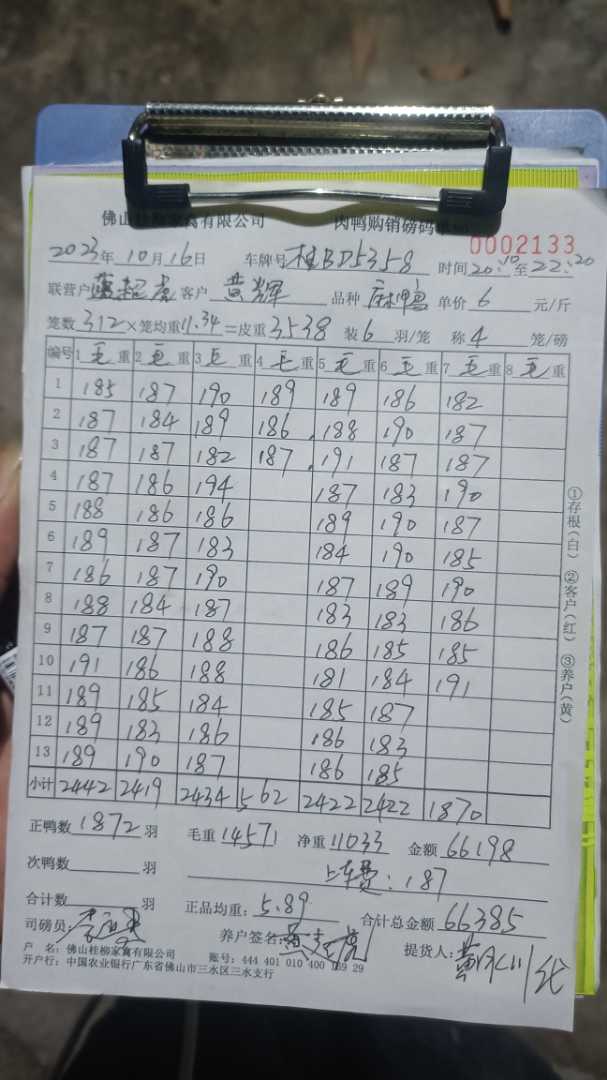 佛山桂柳家禽有限公司 肉鸭购销磅码单
0002133
2023年10月16日 车牌号 桂BD5358 时间20:10至22:20
联营户 客户 黄辉 品种 麻鸭 单价 6 元/斤
笼数312×笼均重11.34=皮重3538 装6羽/笼 称4笼/磅
编号 1毛重 2毛重 3毛重 4毛重 5毛重 6毛重 7毛重 8毛重
1 185 187 190 189 189 186 182
2 187 184 189 186 188 190 187
3 187 187 182 187 191 187 187
4 187 186 194 187 183 190
5 188 186 186 189 190 187
6 189 187 183 184 190 185
7 186 187 190 187 189 190
8 188 184 187 183 183 186
9 187 187 188 186 185 185
10 191 186 188 181 184 191
11 189 185 184 185 187
12 189 183 186 186 183
13 189 190 187 186 185
小计 2442 2419 2434 562 2422 2422 1870
正鸭数1872羽 毛重14571 净重11033 金额66198
次鸭数 羽 上车费:187
合计数 羽 正品均重:5.89 合计总金额66385
司磅员: 养户签名: 提货人:
户 名:佛山桂柳家禽有限公司 账号:444 401 010 400 29
开户行:中国农业银行广东省佛山市三水区三水支行
①存根(白) ②客户(红) ③养户(黄)